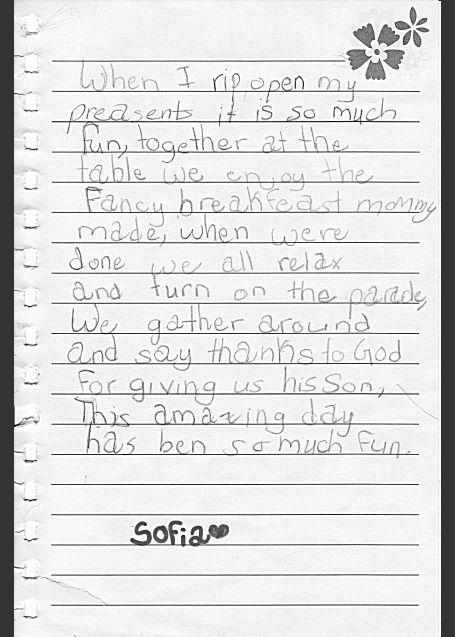 When I rip open my
preasents it is so much
fun, together at the
table we enjoy the
Fancy breakfeast mommy
made, when were
done we all relax
and turn on the parade,
We gather around
and say thanks to God
for giving us his Son,
This amazing day
has ben so much fun.
Sofia